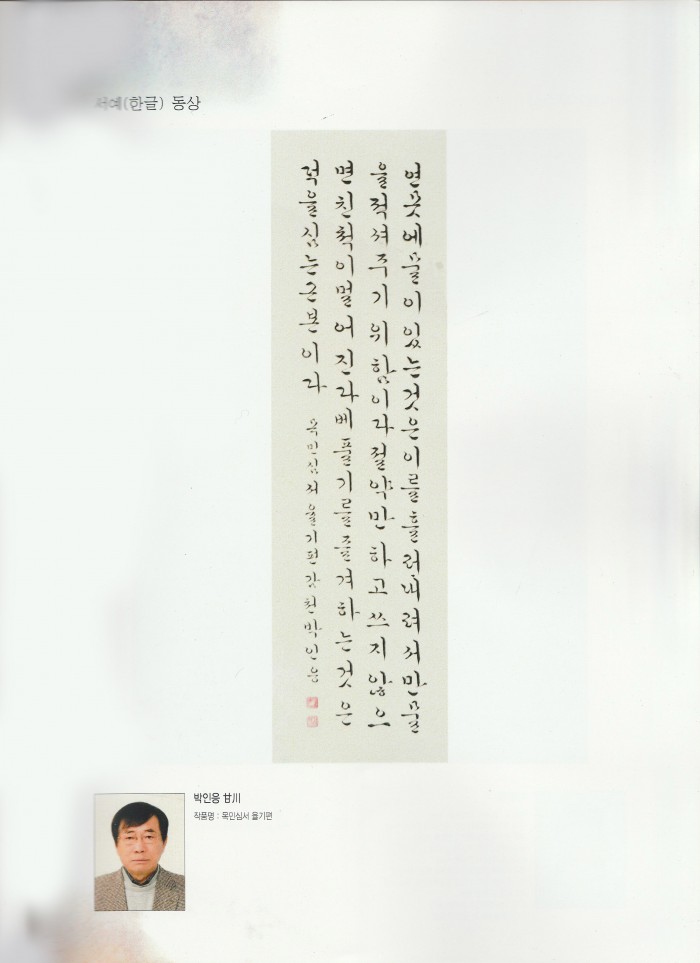 서예(한글) 동상
연못에물이있는것은이를흘러내려서만물
을적셔주기위함이라절약만하고쓰지않으
면친척이멀어진라베풀기를즐겨하는것은
덕을심는근본이라 목민심서율기편감천박인응
박인응 甘川
작품명 : 목민심서 율기편